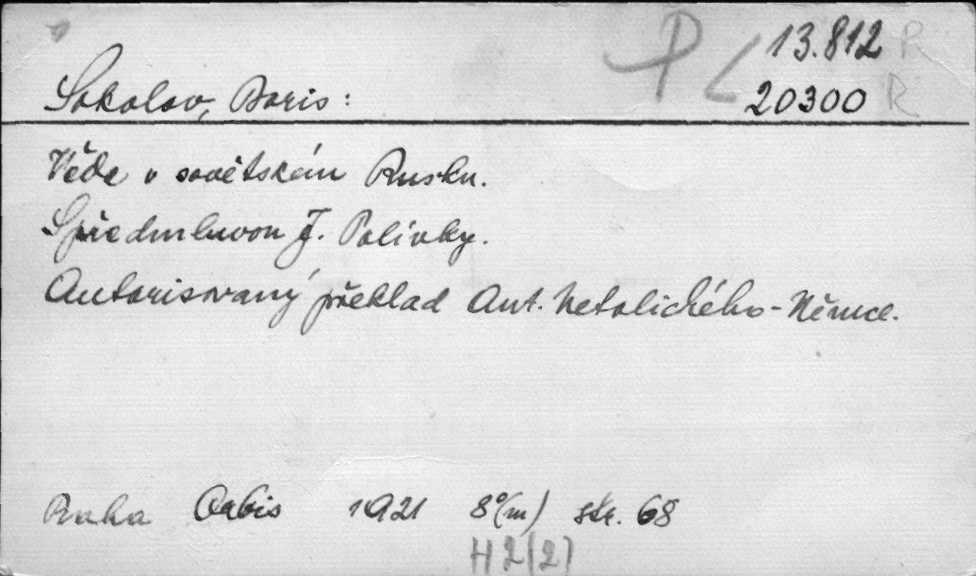 P L 13.812 R
Sokolov, Boris: 20300 R
Věda v sovětském Rusku.
S předmluvou J. Polívky.
Autorisovaný překlad Ant. Netolického-Němce.
Praha Orbis 1921 8°(m) str. 68
H 2(2)